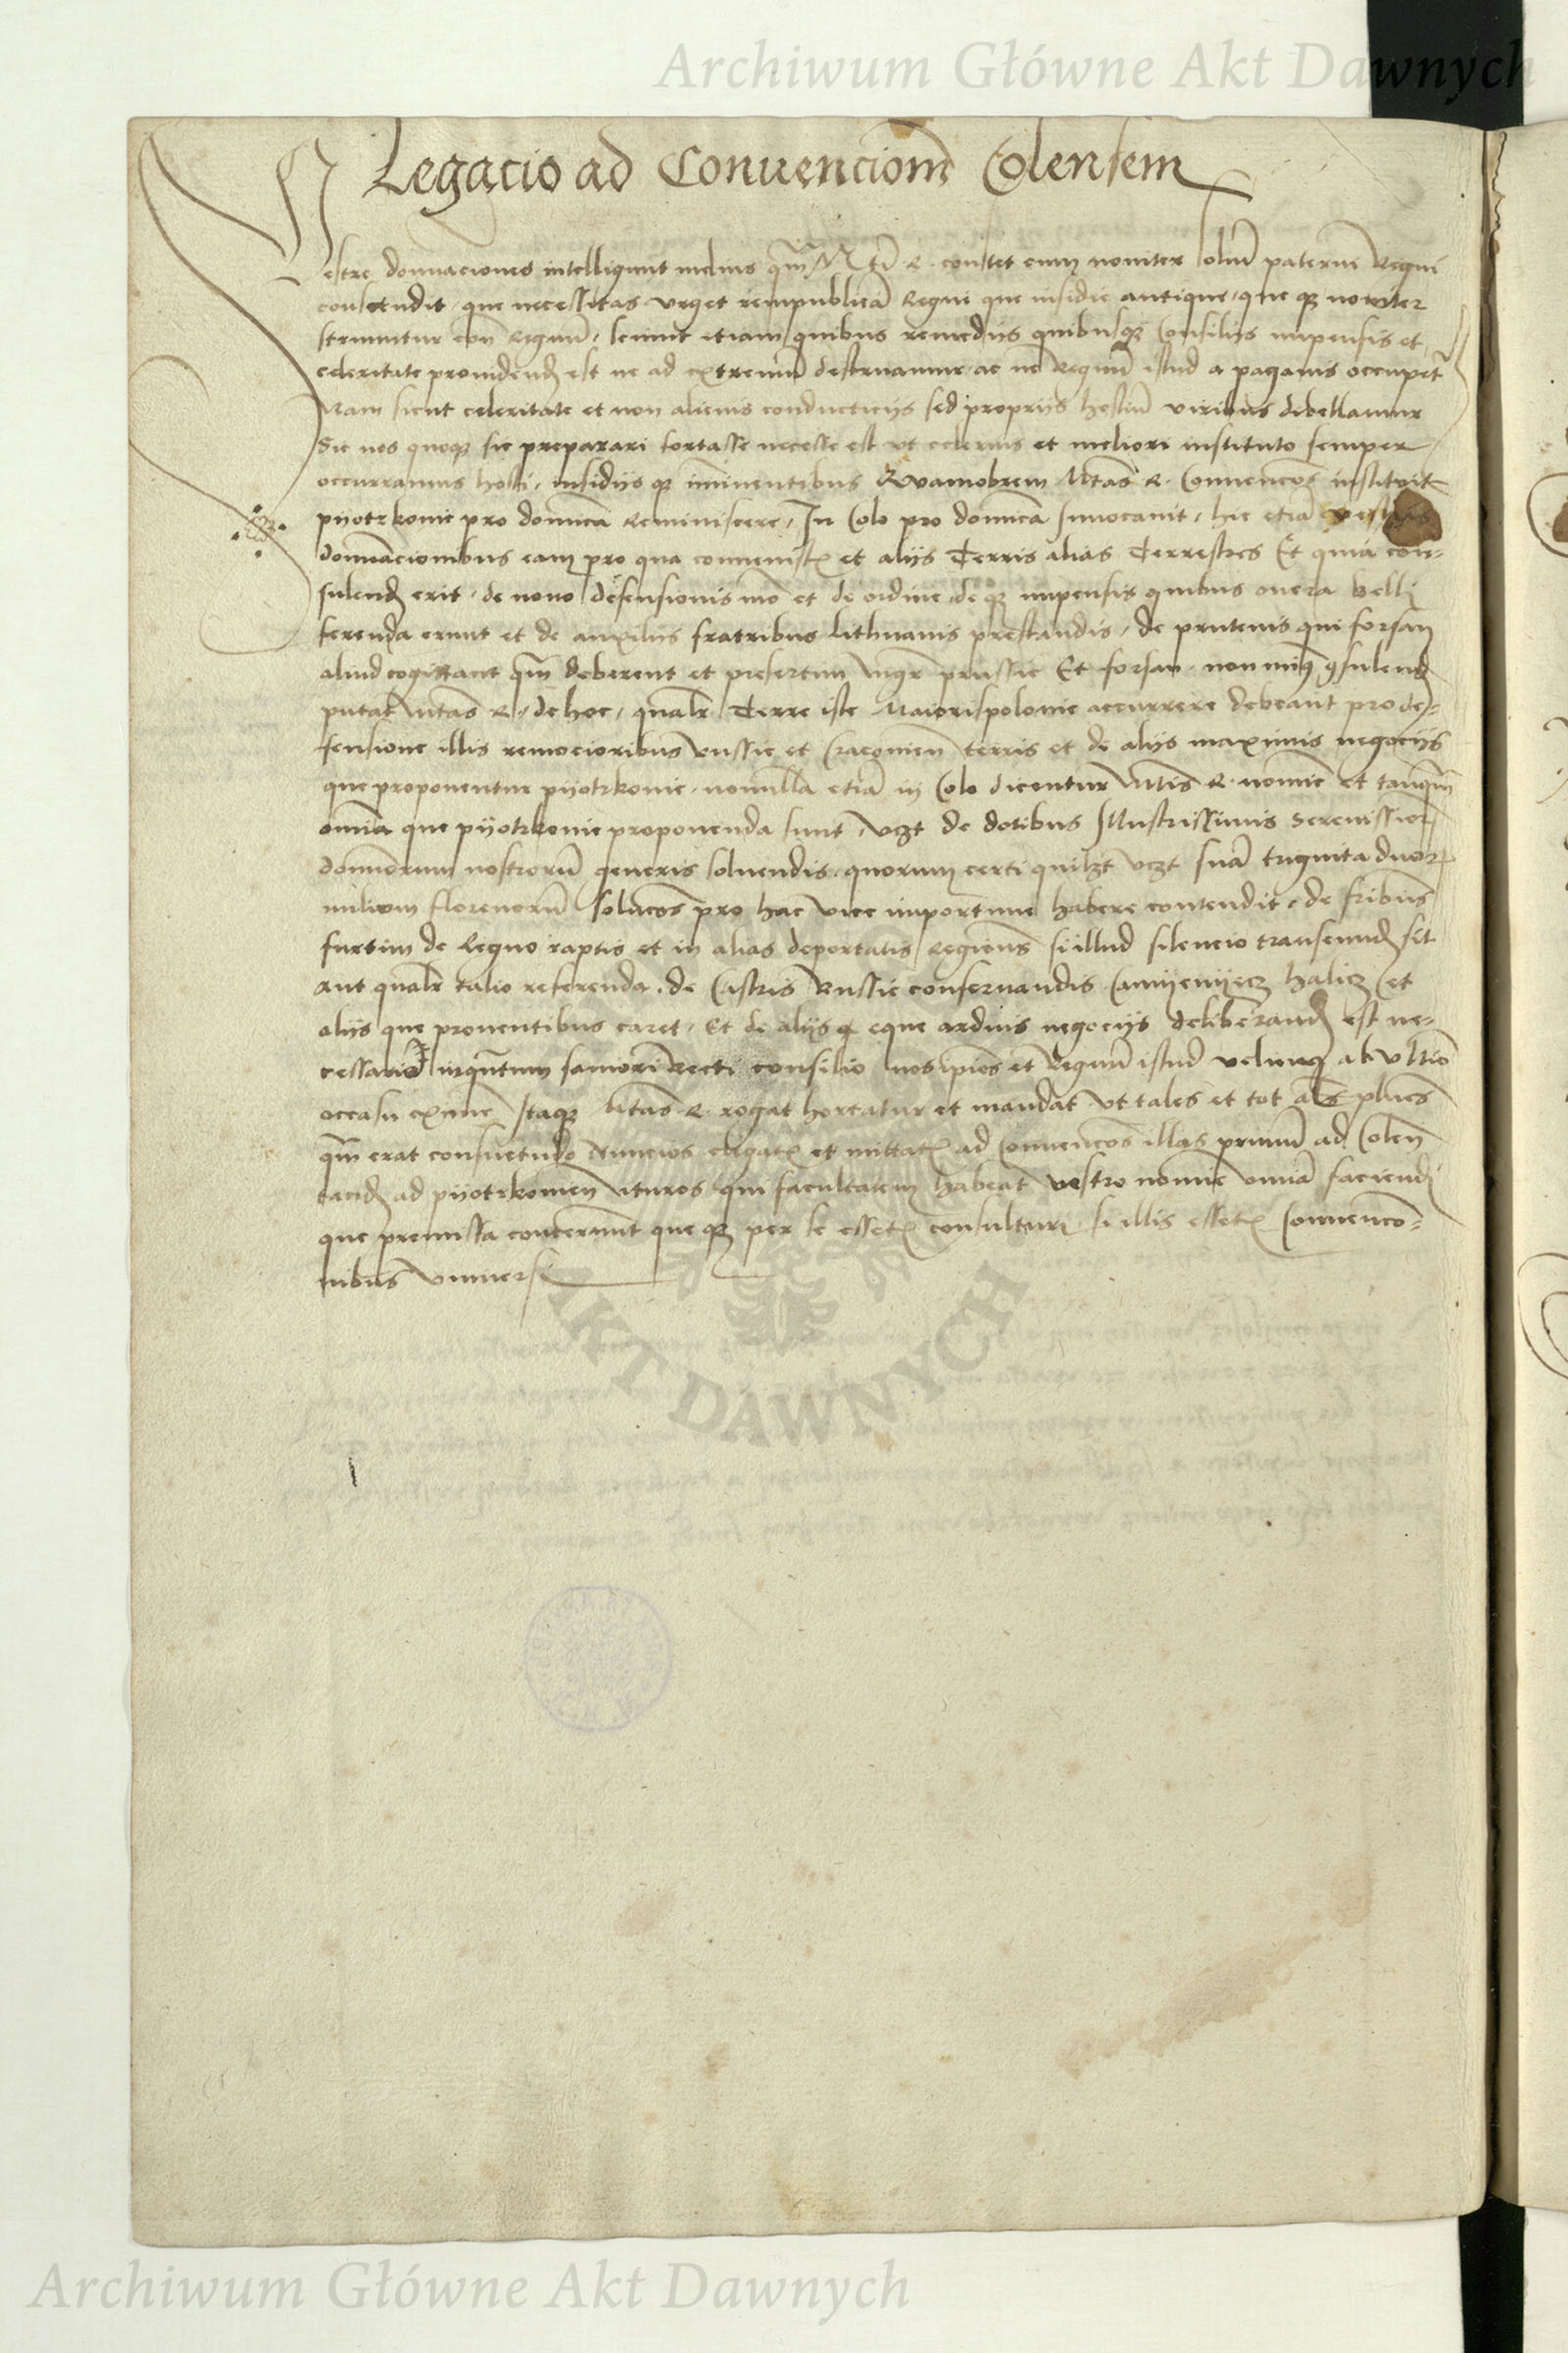 Archiwum Główne Akt Dawnych
Legacio ad Conuencionē Colensem
Vestre donnaciones intelligunt melius qm̄ Mti R. constet cum nouiter soliū paternū Regni
conscendit, que necessitas vrget rempublicā Regni que insidie antique, que qȝ nouiter
struuntur con̄ Regnū, sciunt etiam quibus remediis quibusqȝ Consiliis impensis et
celeritate prouidend est ne ad extremū destruamur, ac ne Regnū istud a paganis occupet
Nam sicut celeritate et non alienis conducticijs sed proprijs hostiū viribus debellamur
Sic nos quoqȝ sic preparari fortasse necesse est vt celerius et meliori instituto semper
occurramus hosti, insidijs qȝ iminentibus Quamobrem Mtas R. Conuencōes instituit
pyotrkouie pro domica Reminiscere, In Colo pro domica Inuocauit, hic etiā vestris
donnācionibus eam pro qua conuenistȝ et aliis Terris alias Terrestres Et quia con-
sulend erit, de nouo defensionis mō et de ordine de qȝ impensis quibus onera belli
ferenda erunt et de auxiliis fratribus lithuanis prestandis, de prutenis qui forsan
aliud cogitant qm̄ deberent et presertim mgr prussie Et forsan, non min9 9sulend
putat Mtas R. de hoc, qualr Terre iste Maiorispolonie accurrere debeant pro de-
fensione illis remocioribus russie et Cracouien terris et de aliis maximis negocijs
que proponentur pyotrkouie, nonulla etiā in Colo dicentur Mtis R. nomie et tanqm̄
omnia que pyotrkouie proponenda sunt, vzt de dotibus Illustrissimis Serenissior
dominorum nostrorū generis soluendis, quorum certi quilzt vczt suā triginta duor
milium florenorū solucōs pro hac vice importune habere contendit, de fribus
furtim de Regno raptis et in alias deportatis Regiones si illud silencio transeund sit
aut qualr talio referenda, de Castris Russie conseruandis Camyenyecz halicz et
aliis que prouentibus caret, Et de aliis qȝ eque arduis negocijs deliberand est ne-
cessario inqntum saniori Recti consilio nos ipos et Regnū istud velimqȝ ab vltio
occasu eximere Itaqȝ Mtas R. rogat hortatur et mandat vt tales et tot als plures
qm̄ erat consuetudo Nuncios eligatȝ et mittatȝ ad Conuencōes illas primū ad Colen
tand ad pyotrkouien ituros qui facultatem habeat vestro nomie omnia faciendi
que premissa concernunt que qȝ per se essetȝ consulturi si illis essetȝ Conuencō-
nibus vniuersi
AKT DAWNYCH
Archiwum Główne Akt Dawnych